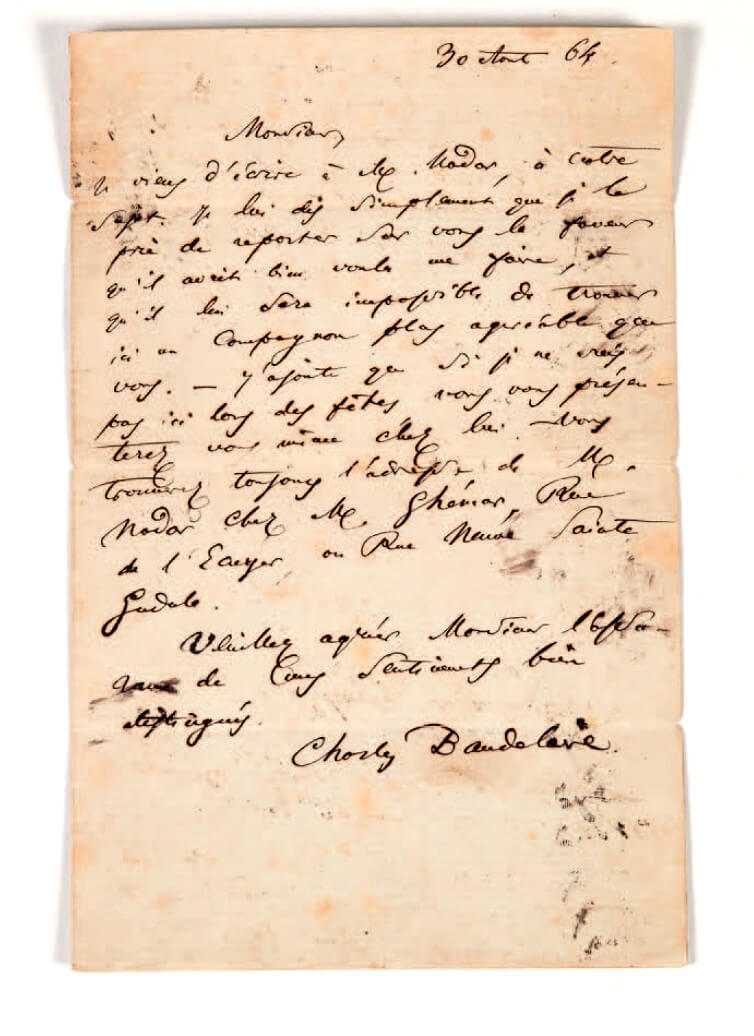 30 Août 64.
Monsieur,
Je viens d'écrire à M. Nadar, à votre
sujet. Je lui dis simplement que je le
prie de reporter sur vous la faveur
qu'il avait bien voulu me faire, et
qu'il lui sera impossible de trouver
ici un compagnon plus agréable que
vous. — J'ajoute que si je ne suis
pas ici lors des fêtes vous vous présen-
terez vous même chez lui. Vous
trouverez toujours l'adresse de M.
Nadar chez M. Ghémar, Rue
de l'Ecuyer ou Rue Neuve Sainte
Gudule.
Veuillez agréer Monsieur l'assu-
rance de mes sentiments bien
distingués.
Charles Baudelaire.